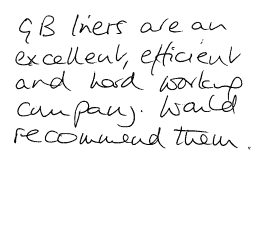 GB liners are an
excellent, efficient
and hard working
company. Would
recommend them.